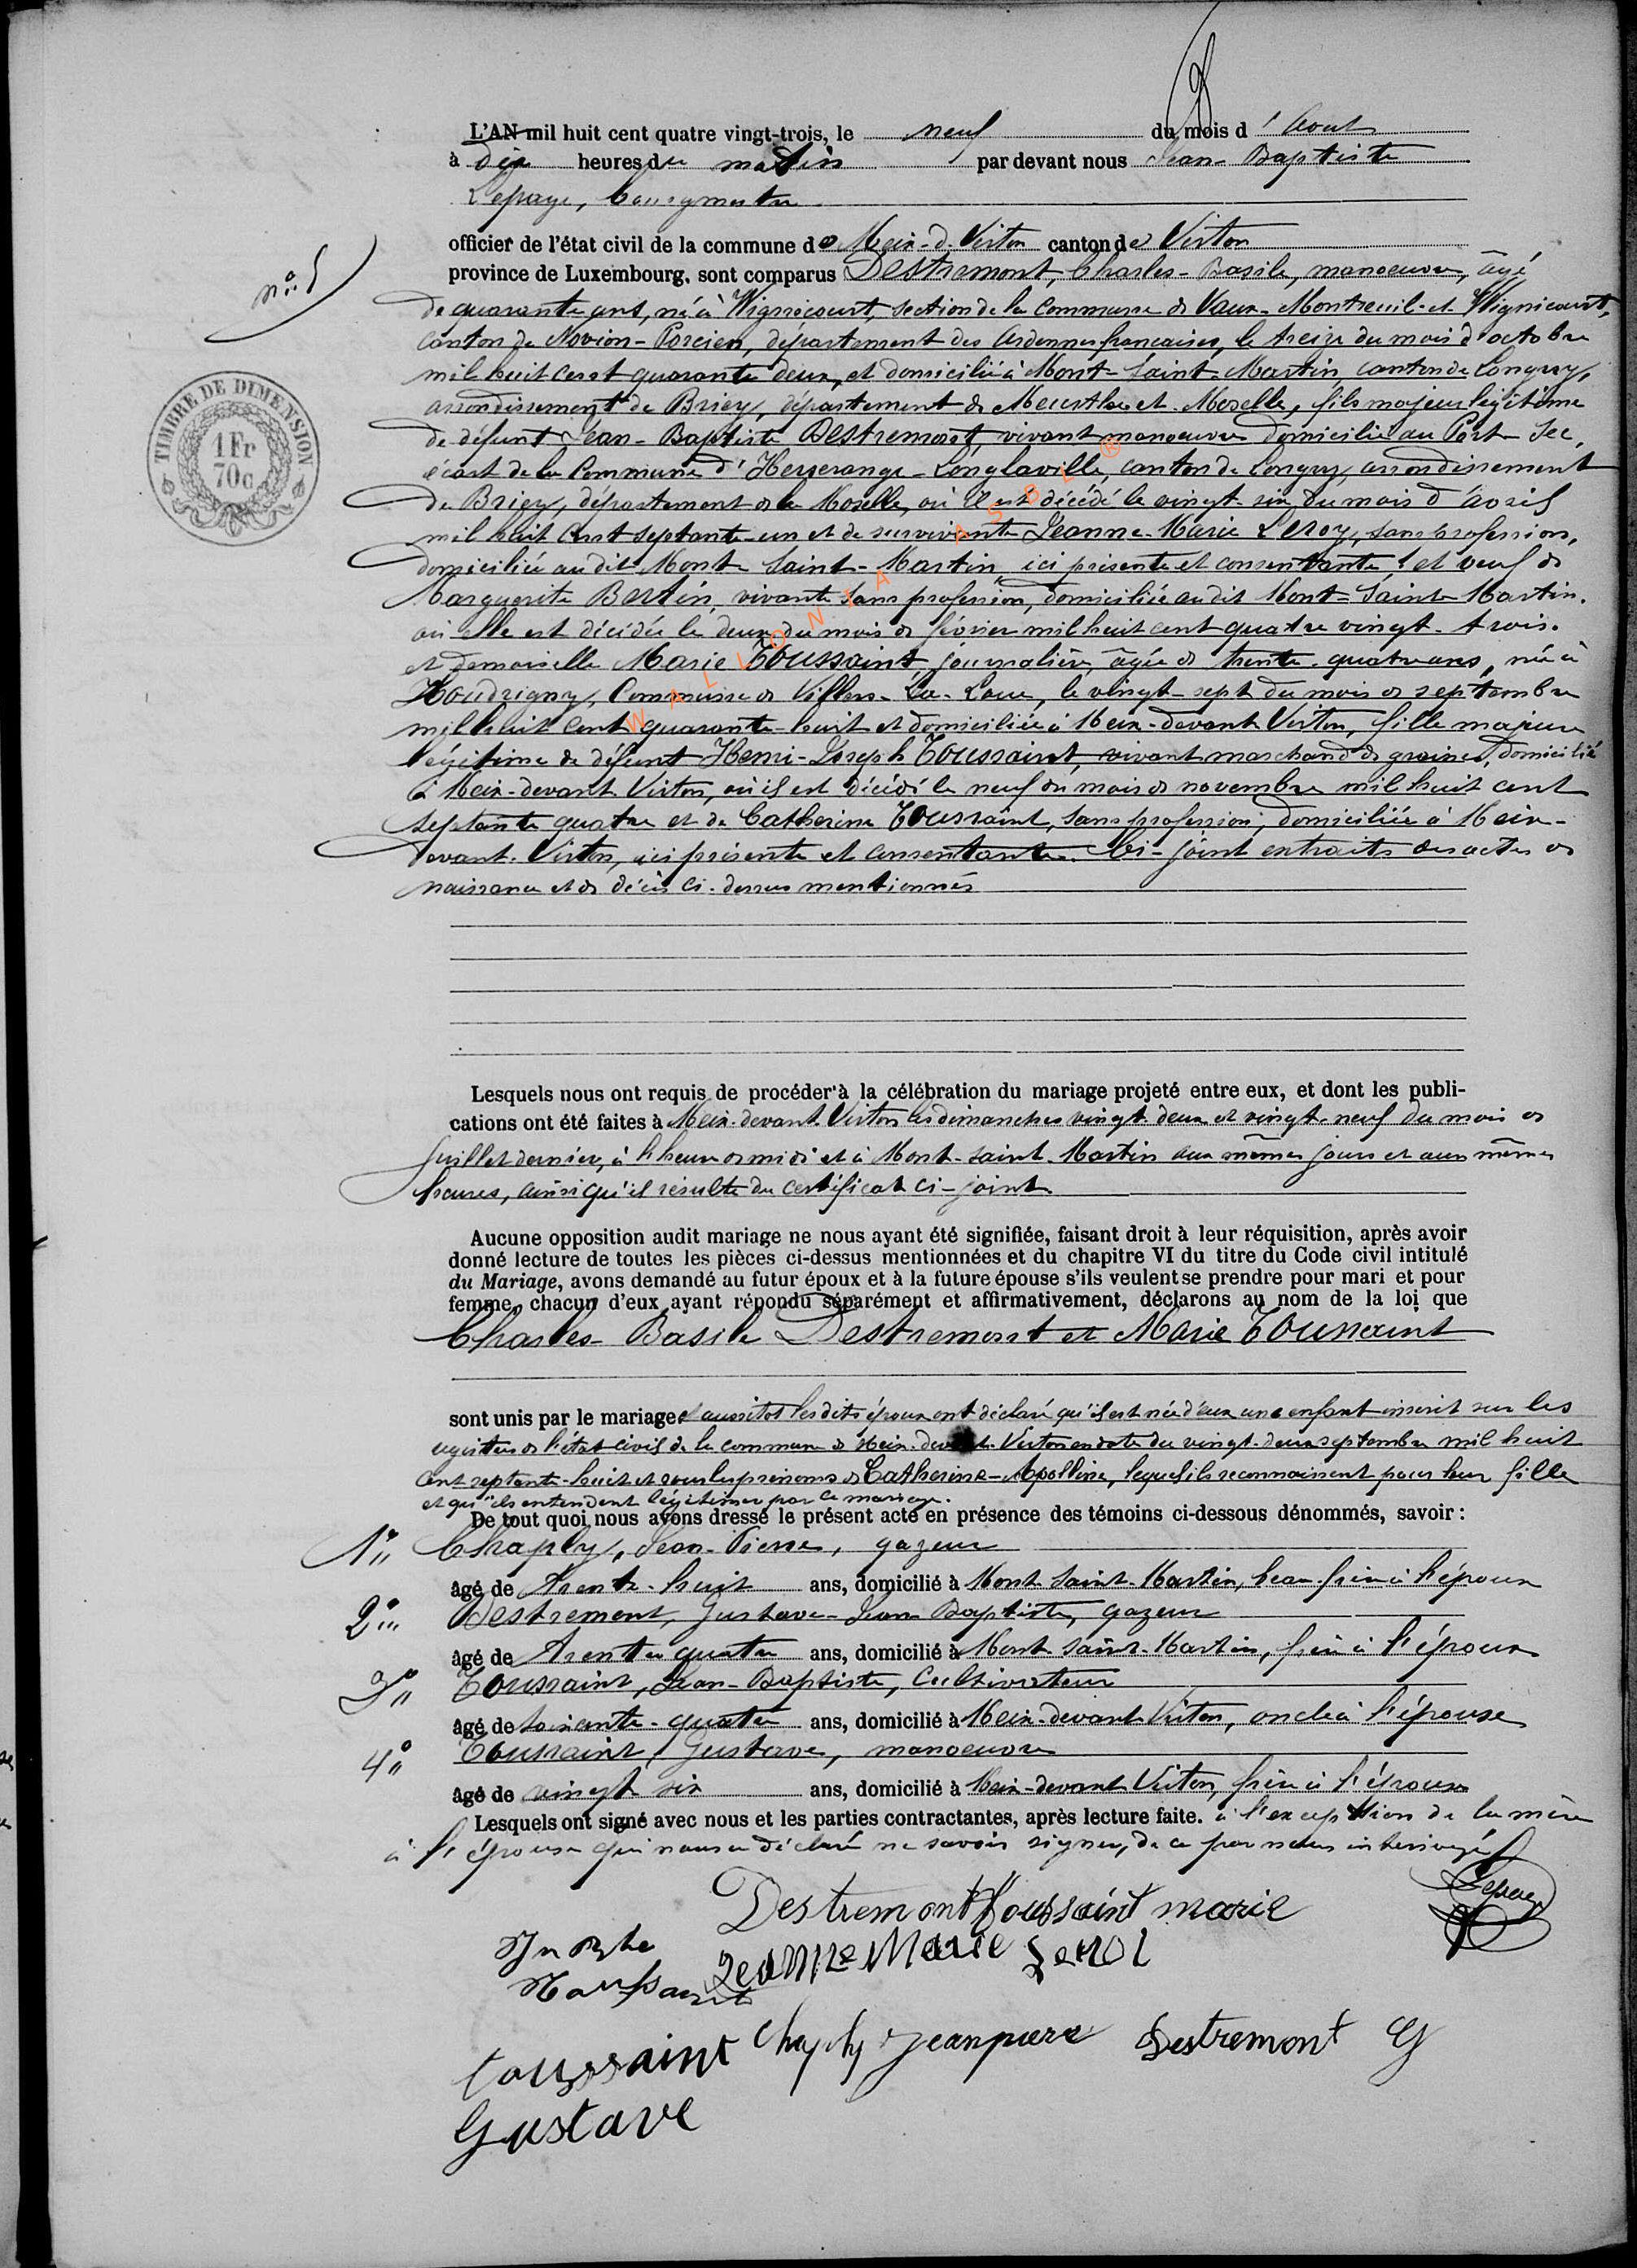 L'AN mil huit cent quatre vingt-trois, le neuf du mois d'Aout
à dix heures du matin par devant nous Jean-Baptiste
Lepage, bourgmestre
officier de l'état civil de la commune de Meix-d.-Virton canton de Virton
n° 5
province de Luxembourg, sont comparus Destremont, Charles-Basile, manoeuvre, âgé
de quarante ans, né à Wignicourt, section de la commune de Vaux-Montreuil-et-Wignicourt,
canton de Novion-Porcien, département des Ardennes françaises, le treize du mois d'octobre
mil huit cent quarante deux, et domicilié à Mont-Saint-Martin, canton de Longwy,
arrondissement de Briey, département de Meurthe et Moselle, fils majeur légitime
TIMBRE DE DIMENSION
1 Fr
70c
de défunt Jean-Baptiste Destremont, vivant manoeuvre domicilié au Port-Sec,
écart de la Commune d'Herserange-Longlaville, canton de Longwy, arrondissement
de Briey, département de la Moselle, où il est décédé le vingt-six du mois d'avril
mil huit cent septante-un et de survivante Jeanne-Marie Leroy, sans profession,
domiciliée au dit Mont-Saint-Martin, ici présente et consentante, et veuf de
Marguerite Bertin, vivante sans profession, domiciliée au dit Mont-Saint-Martin.
où elle est décédée le deux du mois de février mil huit cent quatre vingt-trois.
et demoiselle Marie Toussaint, journalière, âgée de trente-quatre ans, née à
Houdrigny, Commune de Villers-La-Loue, le vingt-sept du mois de septembre
mil huit cent quarante-huit et domiciliée à Meix-devant-Virton, fille majeure
légitime de défunt Henri-Joseph Toussaint, vivant marchand de graines, domicilié
à Meix-devant-Virton, où il est décédé le neuf du mois de novembre mil huit cent
septante quatre et de Catherine Toussaint, sans profession, domiciliée à Meix-
devant-Virton, ici présente et consentante. Ci-joint extraits des actes de
naissance et de décès ci-dessus mentionnés
WALLONIA ASBL ®
Lesquels nous ont requis de procéder à la célébration du mariage projeté entre eux, et dont les publi-
cations ont été faites à Meix-devant-Virton les dimanches vingt-deux et vingt-neuf du mois de
Juillet dernier, à l'heure de midi et à Mont-Saint-Martin aux mêmes jours et aux mêmes
heures, ainsi qu'il résulte du certificat ci-joint
Aucune opposition audit mariage ne nous ayant été signifiée, faisant droit à leur réquisition, après avoir
donné lecture de toutes les pièces ci-dessus mentionnées et du chapitre VI du titre du Code civil intitulé
du Mariage, avons demandé au futur époux et à la future épouse s'ils veulent se prendre pour mari et pour
femme, chacun d'eux ayant répondu séparément et affirmativement, déclarons au nom de la loi que
Charles-Basile Destremont et Marie Toussaint
sont unis par le mariage et aussitôt les dits époux ont déclaré qu'il est née d'eux une enfant inscrit sur les
registres de l'état civil de la commune de Meix-devant-Virton en date du vingt-deux septembre mil huit
cent septante-huit et sous les prénoms de Catherine-Apolline, lequel ils reconnaissent pour leur fille
et qu'ils entendent légitimer par ce mariage.
De tout quoi nous avons dressé le présent acte en présence des témoins ci-dessous dénommés, savoir :
1° Chaply, Jean-Pierre, gazeur
âgé de trente-huit ans, domicilié à Mont-Saint-Martin, beau-frère à l'époux
2° Destremont, Gustave-Jean-Baptiste, gazeur
âgé de trente quatre ans, domicilié à Mont-Saint-Martin, frère à l'époux
3° Toussaint, Jean-Baptiste, cultivateur
âgé de soixante-quatre ans, domicilié à Meix-devant-Virton, oncle à l'épouse
4° Toussaint, Gustave, manoeuvre
âgé de vingt six ans, domicilié à Meix-devant-Virton, frère à l'épouse
Lesquels ont signé avec nous et les parties contractantes, après lecture faite. à l'exception de la mère
à l'épouse qui nous a déclaré ne savoir signer, de ce par nous interrogée
Destremont Toussaint marie Lepage
Jn Bte Jeanne Marie Leroi
Toussaint
toussaint Chaply jeanpiere Destremont G
Gustave